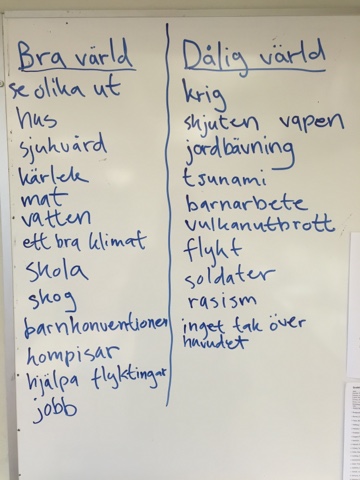 Bra värld
se olika ut
hus
sjukvård
kärlek
mat
vatten
ett bra klimat
skola
skog
barnkonventionen
kompisar
hjälpa flyktingar
jobb
Dålig värld
krig
skjuten vapen
jordbävning
tsunami
barnarbete
vulkanutbrott
flykt
soldater
rasism
inget tak över
huvudet